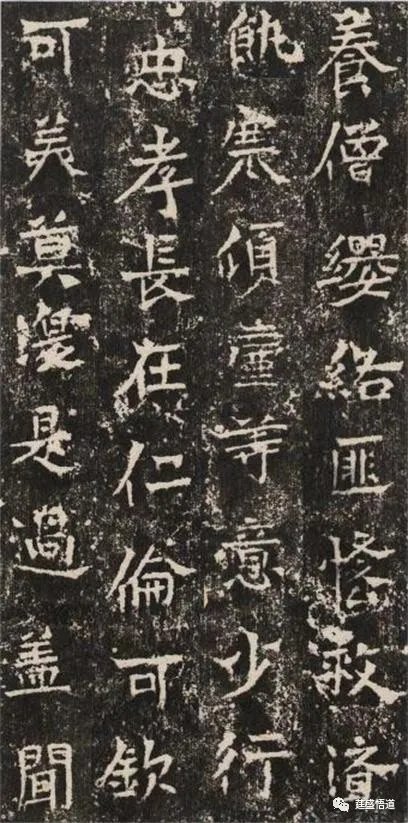 養僧纓絡匪恡救濟
飢寒傾等意少行
忠孝長在仁倫可欽
可美莫是過盖聞
建盛悟道